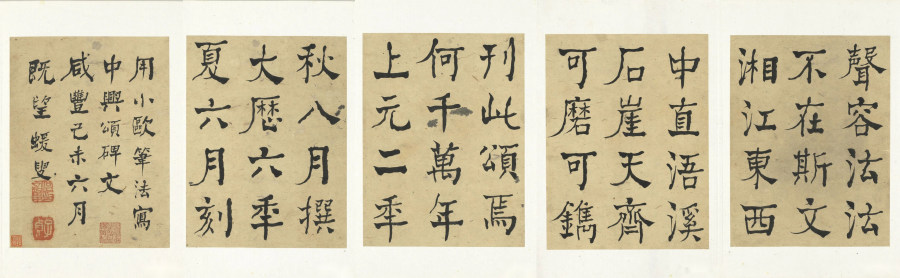 聲容沄沄
不在斯文
湘江東西
中直浯溪
石崖天齊
可磨可鐫
刊此頌焉
何千萬年
上元二秊
秋八月撰
大歷六秊
夏六月刻
用小歐筆法寫
中興頌碑文
咸豐己未六月
既望蝯叟